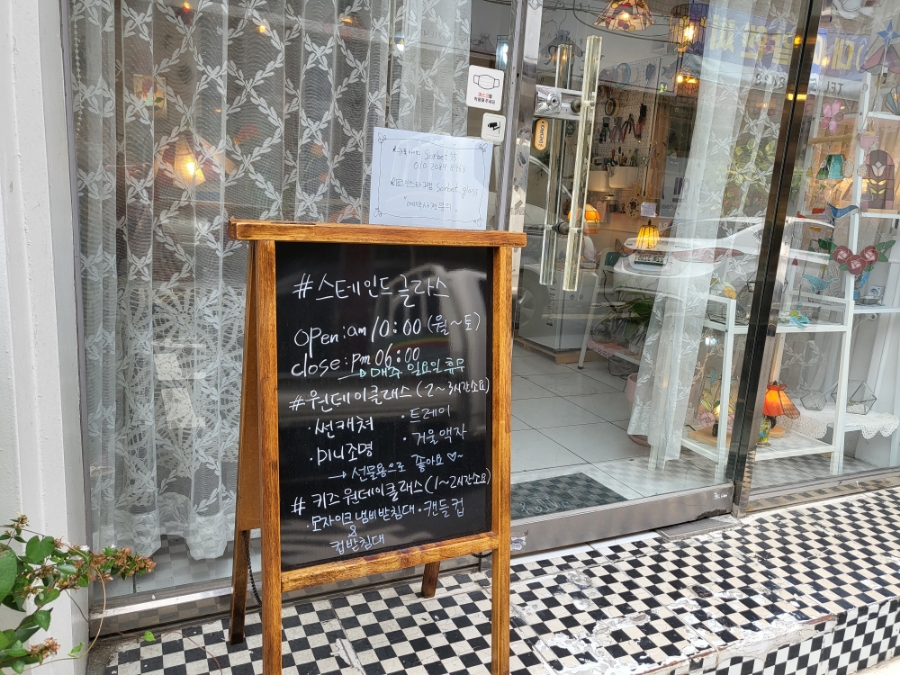 Sorbet
#스테인드글라스
open:am 10:00 (월~토)
close:pm 06:00
매주 일요일 휴무
#원데이클래스 (2~3시간소요)
·썬캐쳐 ·트레이
·미니조명 ·거울액자
→ 선물용으로 좋아요♡~
#키즈원데이클래스(1~2시간소요)
·모자이크 냄비받침대 ·캔들컵
&
컵받침대